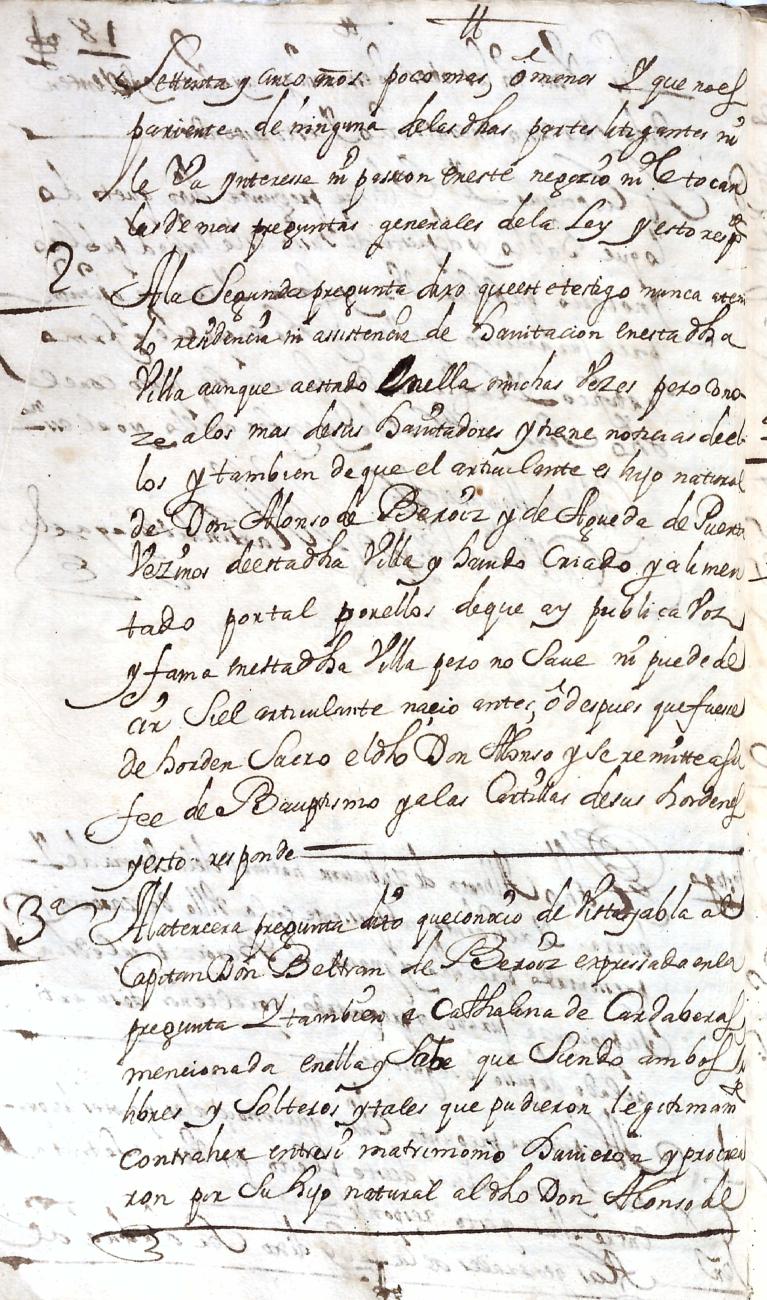 Settenta y cinco años poco mas, ó menos Y que no es
pariente de ninguna de las dhas partes litigantes ni
le Va ynteresse ni passion en este negozio ni Le tocan
las de mas preguntas generales de la Ley y esto resp
2 A la Segunda pregunta dixo que este testigo nunca a teni
do residencia ni assistencia de havitacion en esta dha
Villa aunque a estado en ella muchas Vezes pero cono
ze a los mas de sus havitadores y tiene noticias de el
los y tambien de que el articulante es hijo natural
de Don Alonso de Beroiz y de Agueda de Puerta
Vezinos de esta dha Villa y havido Criado y alimen
tado por tal por ellos de que ay publica Voz
y fama en esta dha Villa pero no Save ni puede de
cir Si el articulante nacio antes, ó despues que fuesse
de horden Sacro el dho Don Alonso y se remitte a su
fee de Bauptismo y a las Cartillas de sus hordenes
y esto responde
3a A la tercera pregunta dixo que conocio de Vista y abla al
Capitan Don Beltran de Beroiz expressado en la
pregunta Y tambien a Cathalina de Cardaberas
mencionada en ella y Sabe que Siendo ambos
libres y Solteros y tales que pudieron legitimamte
contraher entre si matrimonio huvieron y procrea
ron por Su hijo natural al dho Don Alonso de